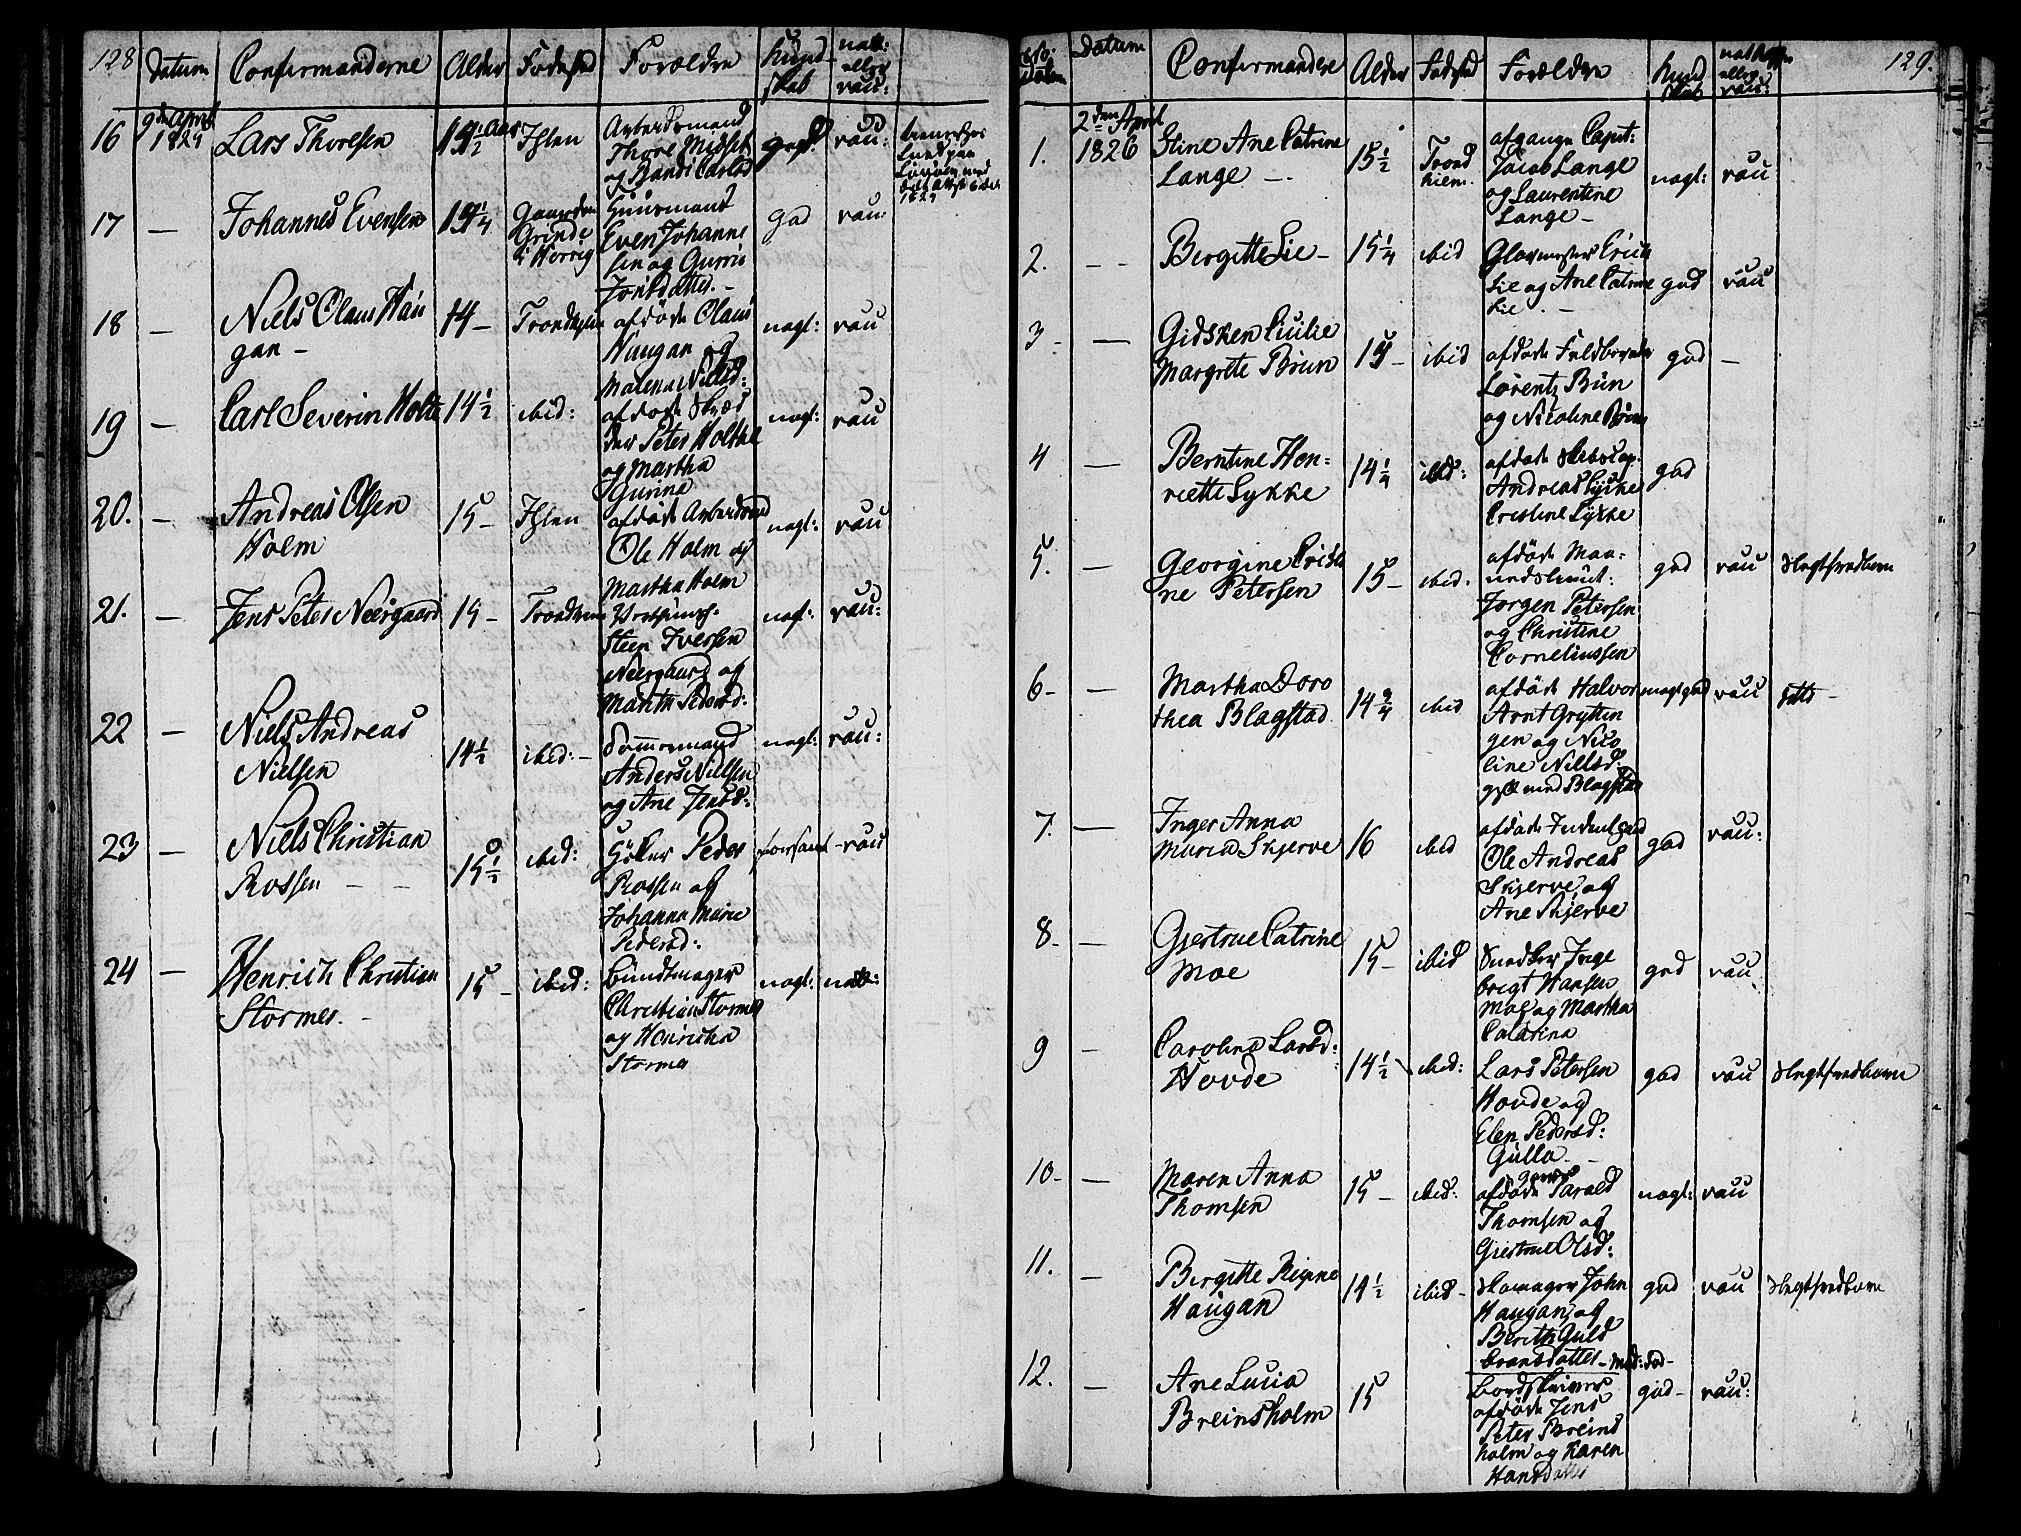 128
Datum Confirmanderne Alder Fødested Forældre Kund-
skab
natt:
eller
vau:
16 9de April
1825 Lars Thoresen Ihlen Arbeidsmand
Thore
og Randi Carlsd
god vau:
17 — Johannes Evensen Huusmand
Even Johanne
sen og Gurrie
Jonsdatter. –
god vau
18 — Niels Olaus Hau
gan – 14 – Trondhjem afdøde Olaus
Haugan og
Malena Nielsd:
nogl: vau
19 — Carl Severin Holte 14½ ibid: afdøde Skræd
der Peter Holthe
og Martha
Gurine
nogl: vau
20. — Andreas Olsen
Holm 15 – Ihlen afdøde Arbeidsmd
Ole Holm og
Martha Holm
nogl: vau
21. — Jens Peter Neergaard 15 – Trondhiem
Steen Iversen
Neergaard og
Marith Pedersd:
nogl: vau:
22 — Niels Andreas
Nielsen 14½ ibid: – Tømmermand
Anders Nielsen
og Ane Jensd:
nogl: vau:
23 — Niels Christian
Rossen — — 15½ ibid: Peder
Rossen og
Johanna Marie
Pedersd:
forsømt vau
24 — Henrich Christian
Stormer. – 15 – ibid: Bundtmager
Christian Stormer
og Henricha
Stormer
nogl: natt:
129.
Datum Confirmandere Alder Fødsted Forældre Kund
skab eller
vau:
1. 2den April
1826 Stine Ane Catrine
Lange —. 15½ Trond
hiem. afgangne Capit:
Jacob Lange
og Laurentine
Lange –
nogl: vau
2. — — Bergitte Lie – 15¼ ibid Glarmester Erich
Lie og Ane Catrine
Lie . –
god vau
3 – — Gidsken Cicilie
Margrete Brun 15 – ibid afdøde
Lorentz Brun
og Nicoline Brun
god –
4 — Berntine Hen-
riette Lykke 14¼ ibid: afdøde
Andreas Lykke
Cristine Lykke
god
5. — Georgine Cristi
ne Petersen 15 – ibid. afdøde Maa-
Jørgen Petersen
og Christine
Corneliussen
god vau Slegtfredbarn
6 – — Martha Doro
thea Blagstad 14¾ ibid afdøde Halvor
Arnt Grytten
gen og Nico
line Nielsd:
gift med Blagstad
vau
7. — Inger Anna
Maria Skjerve 16 ibid afdøde
Ole Andreas
Skjerve og
Ane Skjerve
god vau:
8 – — Gjertrue Catrine
Moe 15 – ibid Snedker Inge
brigt Hansen
Moe og Martha
Catarina
god vau
9 – Carolina Larsd:
Hovde 14½ ibid: Lars Petersen
Hovde og
Elen Pedersd:
Gulla –
god vau Slegtfredbarn
10 – — Maren Anna
Thomsen 15 – ibid: afdøde Tarald
Thomsen og
Giertrue Olsd:
nogl: vau
11. — Bergitte Regine
Haugan 14½ ibid – Skomager John
Haugan og
Berith Guld
bransdatter –
god vau Slegtfredbarn
12. — Ane Lucia
Breinsholm 15 afdøde Jens
Peter Breins
holm og Karen
Hansdatter
god – vau: